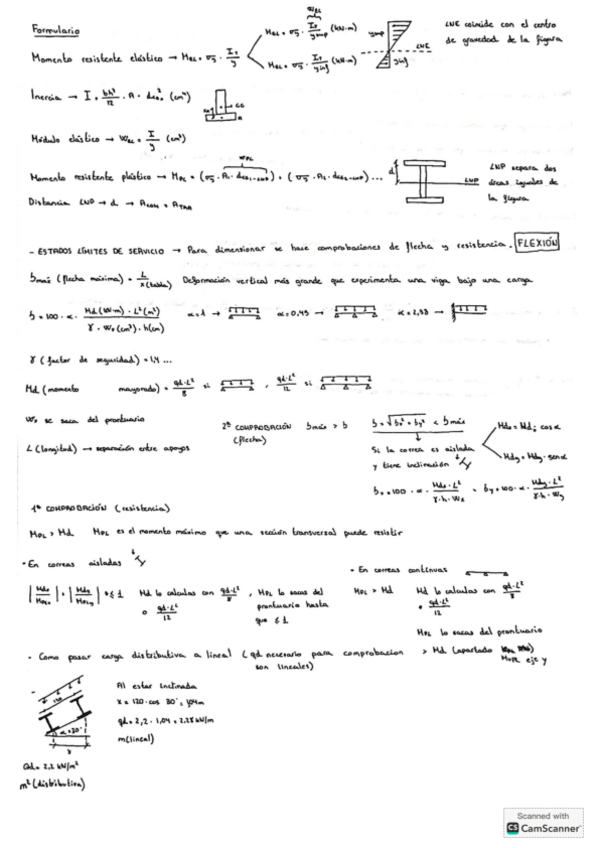 Formulario
Momento resistente elástico → M_EL = σ_y · I_y / y
M_EL = σ_y · I_y / y_sup (kN·m)
M_EL = σ_y · I_y / y_inf (kN·m)
W_EL
y_sup
LNE
y_inf
LNE coincide con el centro
de gravedad de la figura
Inercia → I = bh³/12 · A · d²  (cm⁴)
Módulo elástico → W_EL = I / y (cm³)
W_PL
Momento resistente plástico → M_PL =
LNP
LNP separa dos
áreas iguales de
la figura
Distancia LNP → d →
- ESTADOS LÍMITES DE SERVICIO → Para dimensionar se hace comprobaciones de flecha y resistencia. FLEXIÓN
(flecha máxima) = L / x (tabla) Deformación vertical más grande que experimenta una viga bajo una carga
= 100 · α · Md (kN·m) · L² (m²) / γ · W (cm³) · h (cm)
α = 1 →
γ (factor de seguridad) = 1,4 ...
Md (momento mayorado) = qd·L² / 8 si , qd·L² / 12 si
se saca del prontuario
L (longitud) → separación entre apoyos
2ª COMPROBACIÓN
(flecha)
Si la correa es aislada
y tiene inclinación
1ª COMPROBACIÓN (resistencia)
M_PL > Md M_PL es el momento máximo que una sección transversal puede resistir
• En correas aisladas
≤ 1 Md lo calculas con qd·L² / 8 o qd·L² / 12 , M_PL lo sacas del
prontuario hasta
que ≤ 1
• En correas continuas
M_PL > Md Md lo calculas con qd·L² / 8
o qd·L² / 12
M_PL lo sacas del prontuario
> Md (apartado eje y
• Como pasar carga distributiva a lineal (qd necesario para comprobacion
son lineales)
α = 30°
x
Al estar inclinada
x = 120 · cos 30° = 1,04m
qd = 2,2 · 1,04 = 2,28 kN/m
m (lineal)
Qd = 2,2 kN/m²
m² (distributiva)
Scanned with
CS CamScanner